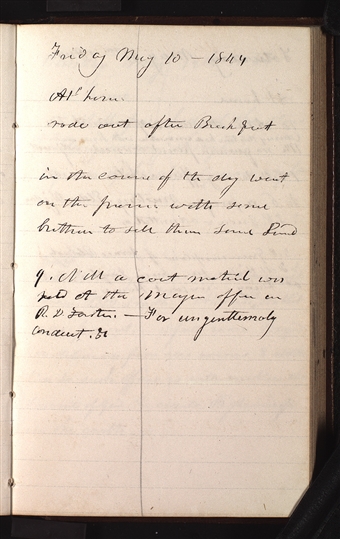 Friday May 10 - 1844
At home.
rode out after Breakfast
in the course of the day went
on the prairie with some
brethren to sell them some Land
9. A M a court martial was
held at the Mayor office on
R. D Foster. — For ungentlemanly
conduct. &c